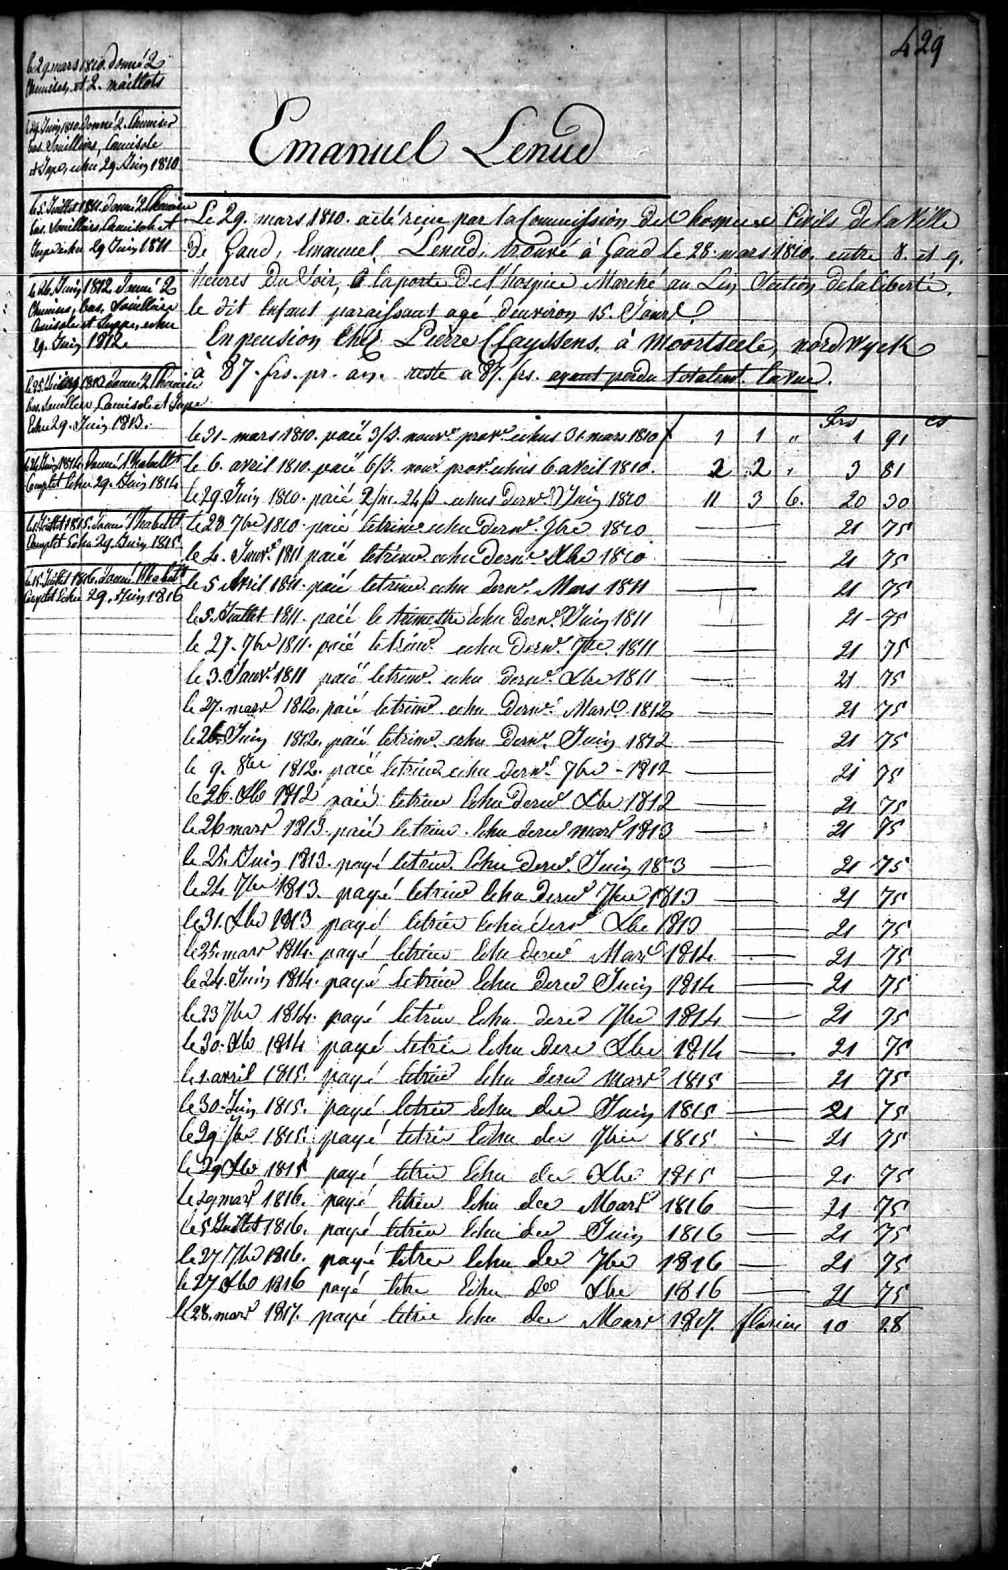 429
le 29 mars 1810. donné 2
Chemises, et 2. maillots
le 29 Juin 1810 donné 2. Chemises
bas Souilliers, Camisole
et Jupe, echu 29. Juin 1810
le 5. Juillet 1811. donné 2 Chemises
bas Souilliers Camisole et
Jupe echu 29 Juin 1811
le 26. Juin 1812 donné 2
Chemises, bas, Souilliers
Camisole et Juppe, echu
29. Juin 1812
le 25. Juin 1813 donné 2 Chemises
bas. Souilliers Camisole et Jupe
Echu 29. Juin 1813.
le 24 Juin 1814. donné 1 habillt
Complet Echu 29. Juin 1814
1815. donné 1 habillt
Complet Echu 29. Juin 1815
le 15. Juillet 1816. donné 1 habillt
Complet Echu 29. Juin 1816
Emanuel Lenud
Le 29. mars 1810. a été reçu par la Commission des hospices Civils de la Ville
de Gand, Emanuel Lenud, trouvé à Gand le 28. mars 1810. entre 8. et 9.
heures du Soir, à la porte de l'hospice Marché au Lin Section de la liberté,
le dit Enfant paraissant agé d'environ 15. Jours.
En pension Chez Pierre Clayssens, à Moortseele, nord Wyck
à 87. frs. pr. an. reste a 87. frs. ayant perdu totalemt. la vue.
Frs cs
le 31. mars 1810. paié 3/3. nouve. prove. echus 31 mars 1810 1 1 " 1 91
le 6. avril 1810. paié 6/3. nouve. prove. echus 6 avril 1810. 2 2 " 3 81
le 29 Juin 1810. paié echus dernr. Juin 1810 11 3 6. 20 30
le 28 7bre 1810 paié le trime echu dernr. 7bre 1810 — 21 75
le 2. Janvr. 1811 paié le trime echu dernr. Xbre 1810 — 21 75
le 5 Avril 1811. paié le trime echu dernr. Mars 1811 — 21 75
le 5. Juillet 1811. paié le trimestre echu dernr. Juin 1811 — 21 75
le 27. 7bre 1811. paié le trime. echu dernr. 7bre 1811 — 21 75
le 3. Janvr. 1811 paié le trime. echu dernr. Xbre 1811 — 21 75
le 27. mars 1812. paié le trime. echu dernr. Mars 1812 — 21 75
le 26. Juin 1812. paié le trime. echu dernr. Juin 1812 — 21 75
le 9. 8bre 1812. paié le trime echu dernr. 7bre 1812 — 21 75
le 26. Xbre 1812 paié le trime Echu dernr Xbre 1812 — 21 75
le 26 mars 1813. paié le trime. Echu dernr mars 1813 — 21 75
le 25. Juin 1813. payé le trime. Echu dernr. Juin 1813 — 21 75
le 24. 7bre 1813. payé le trime Echu dernr 7bre 1813 — 21 75
le 31. Xbre 1813 payé le trime Echu dernr Xbre 1813 — 21 75
le 25. mars 1814. payé le trime Echu dernr Mars 1814 — 21 75
le 24. Juin 1814. payé le trime Echu dernr Juin 1814 — 21 75
le 23 7bre 1814. payé le trime Echu dernr 7bre 1814 — 21 75
le 30. Xbre 1814 payé le trime Echu dernr Xbre 1814 — 21 75
le 1. avril 1815. payé le trime Echu dernr mars 1815 — 21 75
le 30. Juin 1815. payé le trime Echu der Juin 1815 — 21 75
le 29 7bre 1815. payé le trime Echu der 7bre 1815 — 21 75
le 29 Xbre 1815 payé le trime Echu der Xbre 1815 — 21 75
le 29 mars 1816. payé le trime Echu der Mars 1816 — 21 75
le 5 Juillet 1816. payé le trime Echu der Juin 1816 — 21 75
le 27 7bre 1816. payé le trime Echu der 7bre 1816 — 21 75
le 27 Xbre 1816 payé le tre Echu der Xbre 1816 — 21 75
le 28. mars 1817. payé le trime Echu der Mars 1817. florins 10 28